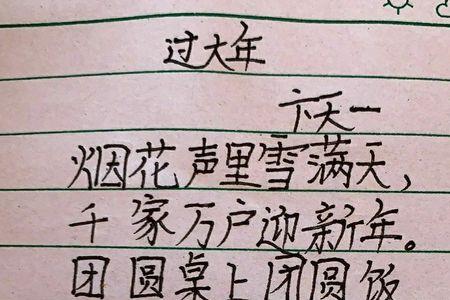 过大年
卞天一
烟花声里雪满天，
千家万户迎新年。
团圆桌上团圆饭